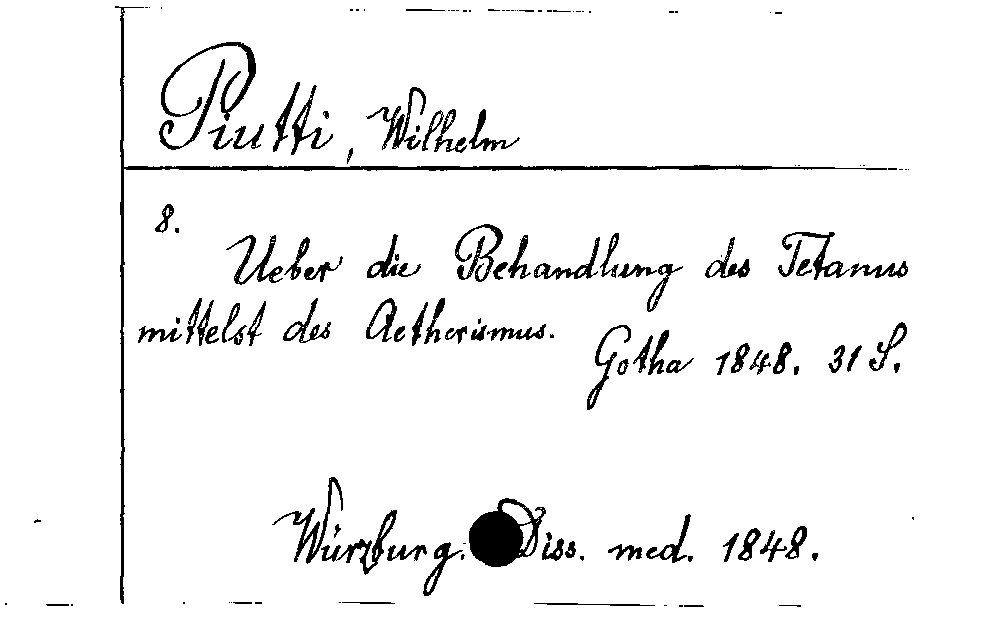 Piutti, Wilhelm
8.
Ueber die Behandlung des Tetanus
mittelst des Aetherismus.
Gotha 1848. 31 S.
Würzburg. Diss. med. 1848.